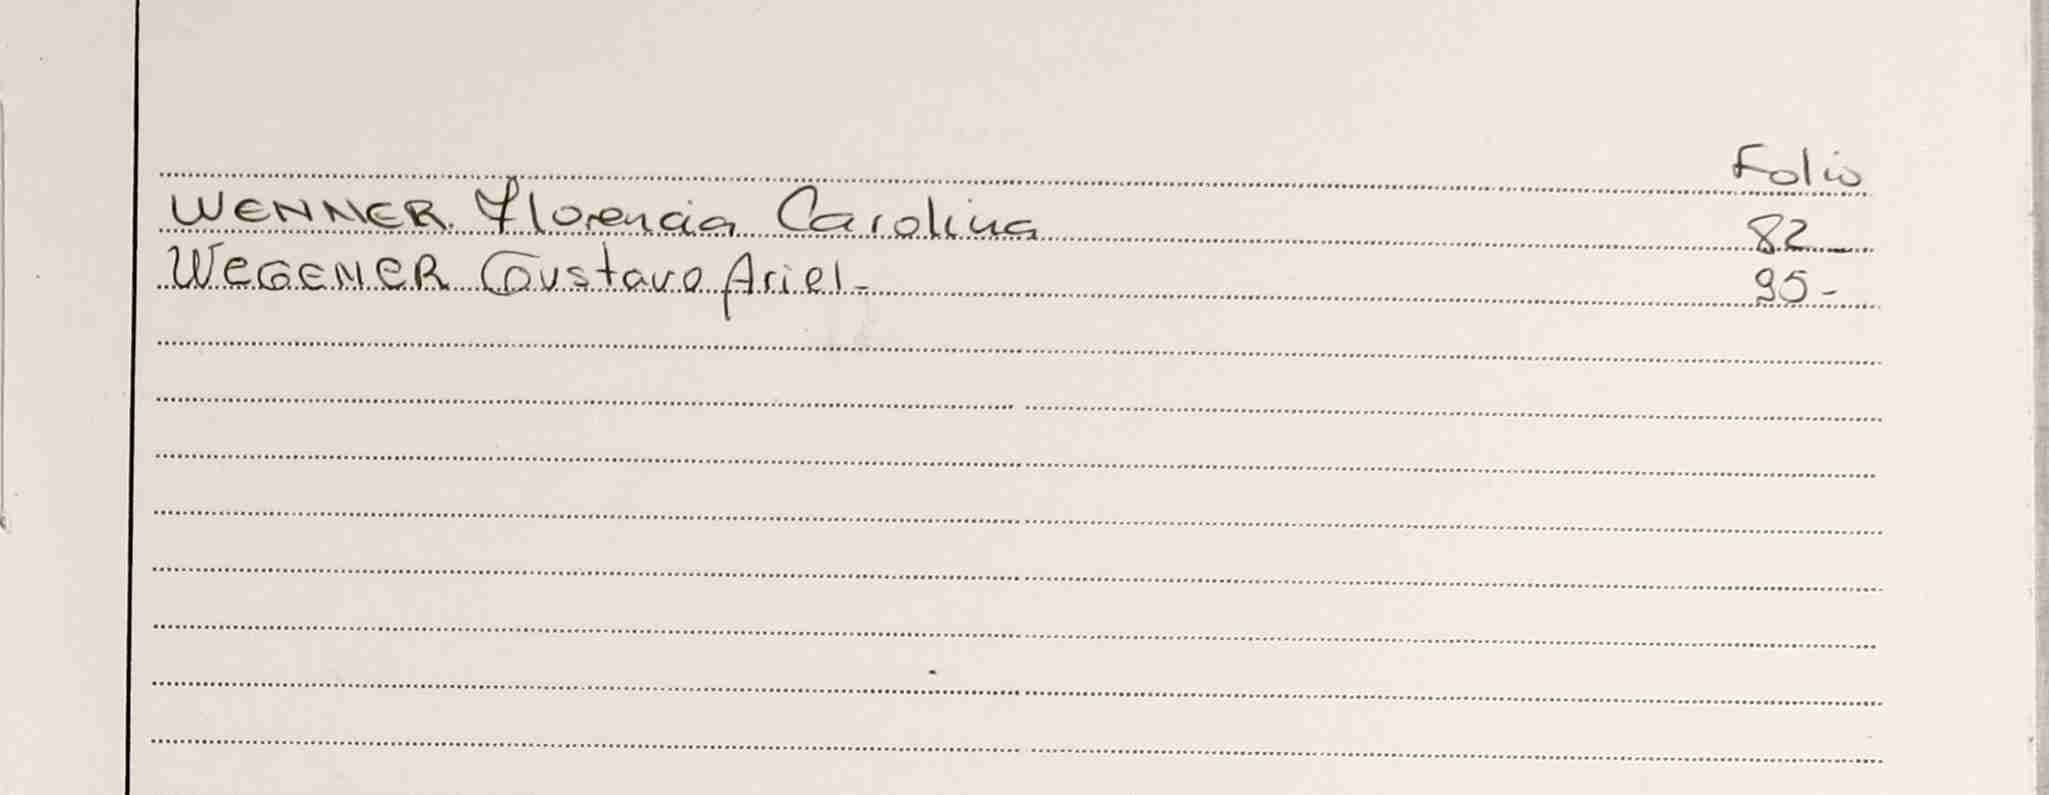 Folio
WENNER. Florencia Carolina 82_
WEGENER Gustavo Ariel- 95-